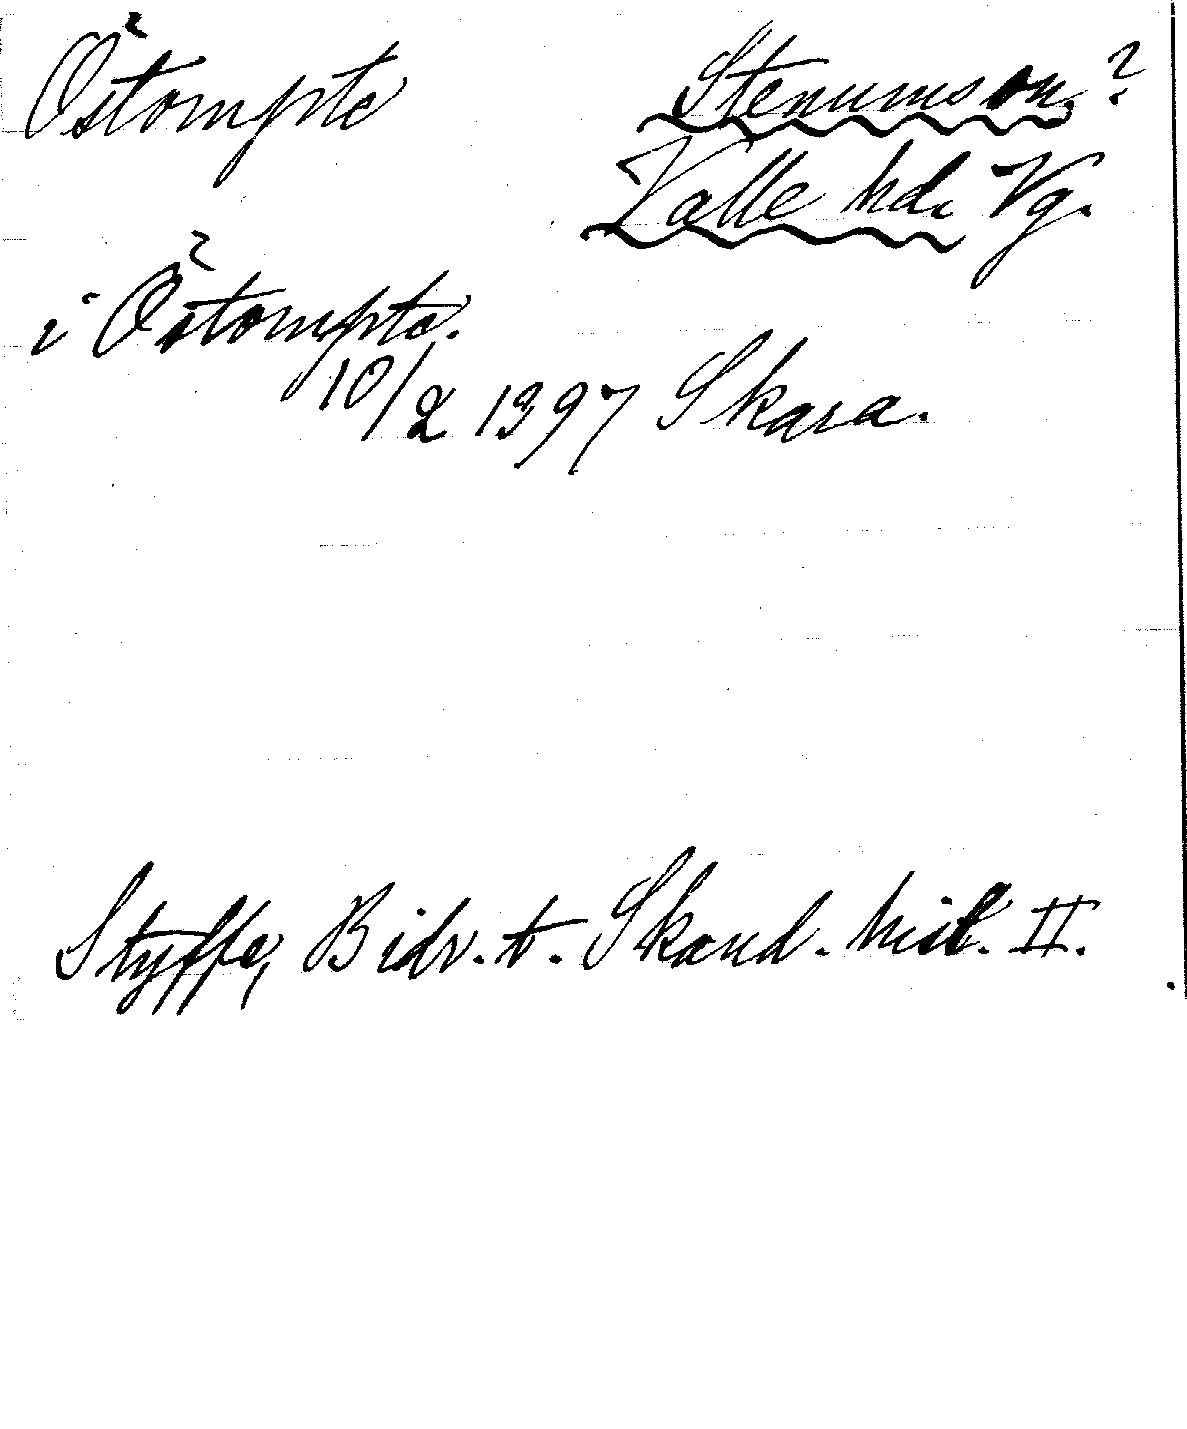 Östompte
Stenums sn.?
Valle hd. Vg.
i Östompte.
10/2 1397 Skara.
Styffe, Bidr. t. Skand. hist. II.